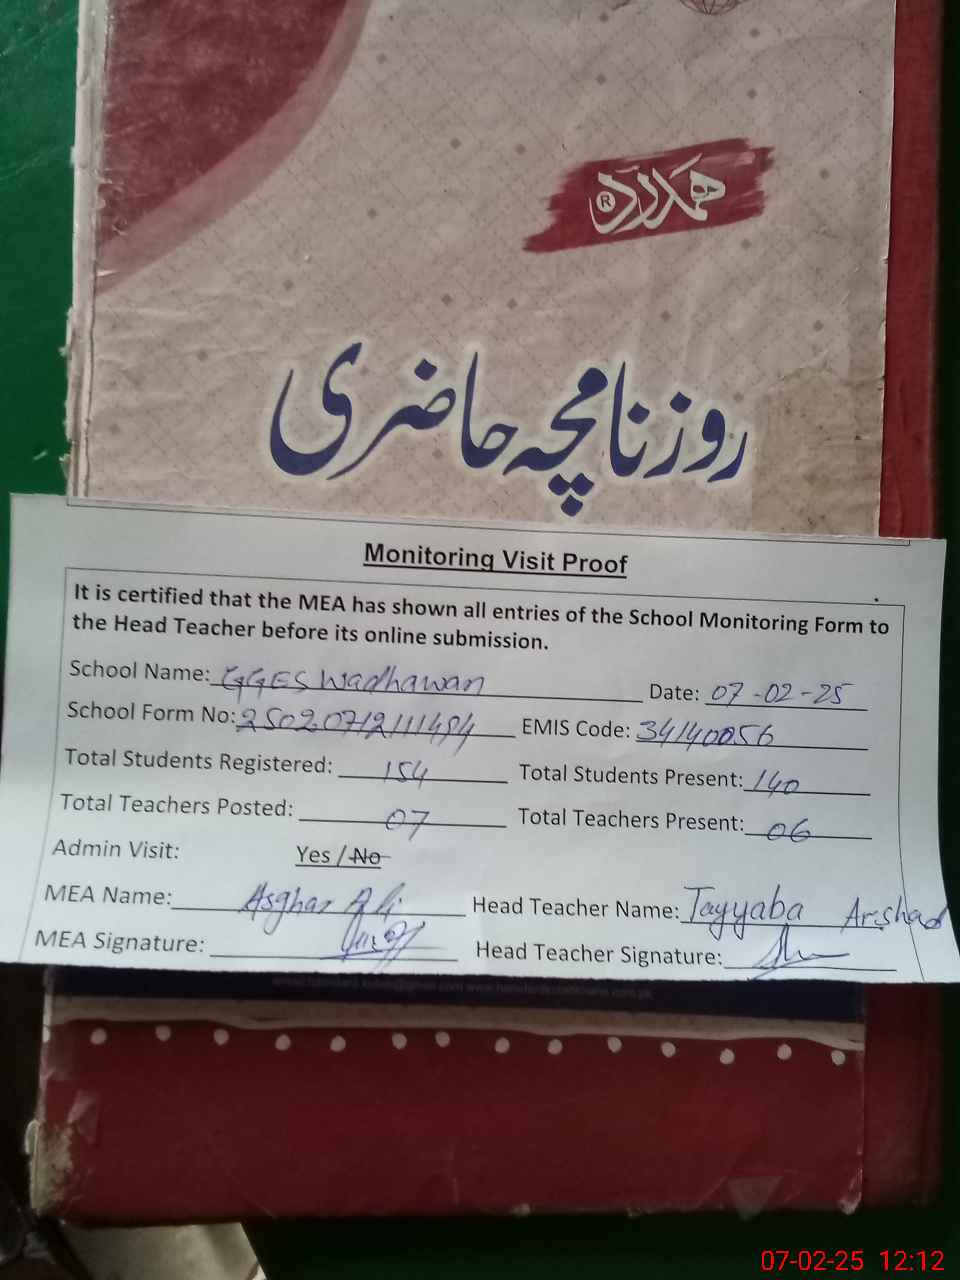 ہمدرد ®
روزنامچہ حاضری
Monitoring Visit Proof
It is certified that the MEA has shown all entries of the School Monitoring Form to
the Head Teacher before its online submission.
School Name: GGES Wadhawan Date: 07-02-25
School Form No: EMIS Code: 34140056
Total Students Registered: 154 Total Students Present: 140
Total Teachers Posted: 07 Total Teachers Present: 06
Admin Visit: Yes / No
MEA Name: Asghar Ali Head Teacher Name: Tayyaba Arshad
MEA Signature: Head Teacher Signature:
07-02-25 12:12